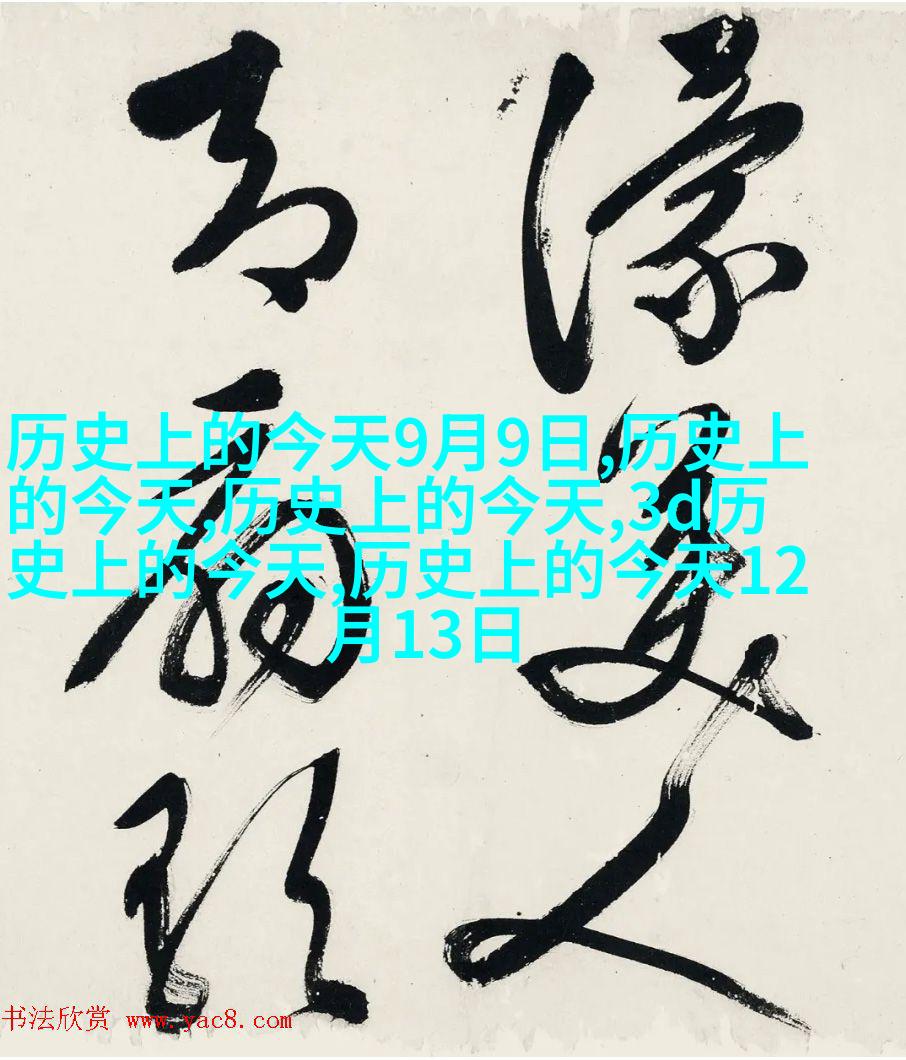 濠美人
历史上的今天9月9日,历史上
的今天,历史上的今天,3d历
史上的今天,历史上的今天12
月13日
书法欣赏 www.yac8.com